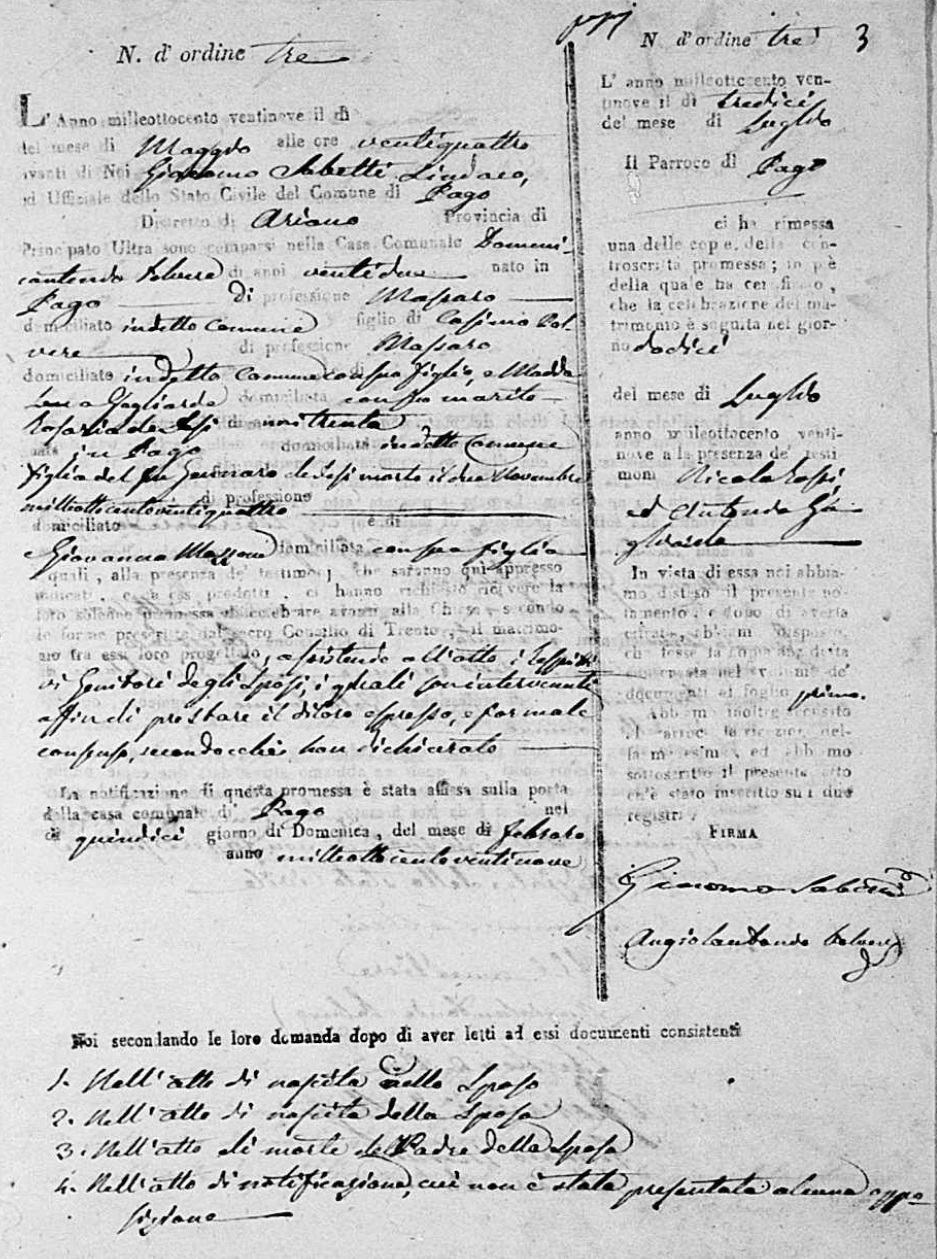 N. d'ordine tre
L'Anno milleottocento ventinove il dì
del mese di Maggio alle ore ventiquattro
avanti di Noi Giacomo Sabetti Sindaco,
ed Uffiziale dello Stato Civile del Comune di Pago
Distretto di Ariano Provincia di
Principato Ultra sono comparsi nella Casa Comunale Domeni-
cantonio Polvere di anni ventidue nato in
Pago di professione Massaro
domiciliato in detto Comune figlio di Cosimo Pol-
vere di professione Massaro
domiciliato in detto Comune con suo figlio, e Madda-
lena Gagliarde domiciliata con suo marito
Rosaria de Lisi di anni trenta
nata in Pago domiciliata in detto Comune
figlia del fu Gennaro de Lisi morto il due Novembre
milleottocentoventiquattro di professione
domiciliato e di
Giovanna domiciliata con sua figlia
quali, alla presenza de' testimonj, che saranno qui appresso
indicati, e da essi prodotti, ci hanno richiesto ricivere la
loro solenne promessa di celebrare avanti alla Chiesa, secondo
le forme prescritte dal sacro Concilio di Trento, il matrimo-
nio tra essi loro progettato, assistendo all'atto i rispetti-
vi Genitori degli Sposi, i quali son intervenuti
affin di prestare il di loro espresso, e formale
consenso, secondocchè han dichiarato
La notificazione di questa promessa è stata affissa sulla porta
della casa comunale di Pago nel
dì quindici giorno di Domenica, del mese di Febraro
anno milleottocentoventinove
N. d'ordine tre 3
L'anno milleottocento ven-
tinove il dì tredici
del mese di Luglio
Il Parroco di Pago
ci ha rimessa
una delle copie della con-
troscritta promessa; in piè
della quale ha certificato,
che la celebrazione del ma-
trimonio è seguita nel gior-
no dodici
del mese di Luglio
anno milleottocento venti-
nove a la presenza de' testi
monj Nicola
ed Antonio Ga-
gliarde
In vista di essa noi abbia-
mo disteso il presente no-
tamento, e dopo di averla
cifrata, abbiam disposto,
che fosse la copia anzidetta
conservata nel volume de'
documenti al foglio primo.
Abbiamo inoltre accusato
al Parroco la ricezione del-
la medesima, ed abbiamo
sottoscritto il presente atto
ch'è stato inscritto su i due
registri.
FIRMA
Giacomo Sabetti
Angiolantonio Polvere
Noi secondando le loro domanda dopo di aver letti ad essi documenti consistenti
1. Nell'atto di nascita dello Sposo
2. Nell'atto di nascita della Sposa
3. Nell'atto di morte del Padre della Sposa
4. Nell'atto di notificazione, cui non è stata presentata alcuna oppo-
sizione